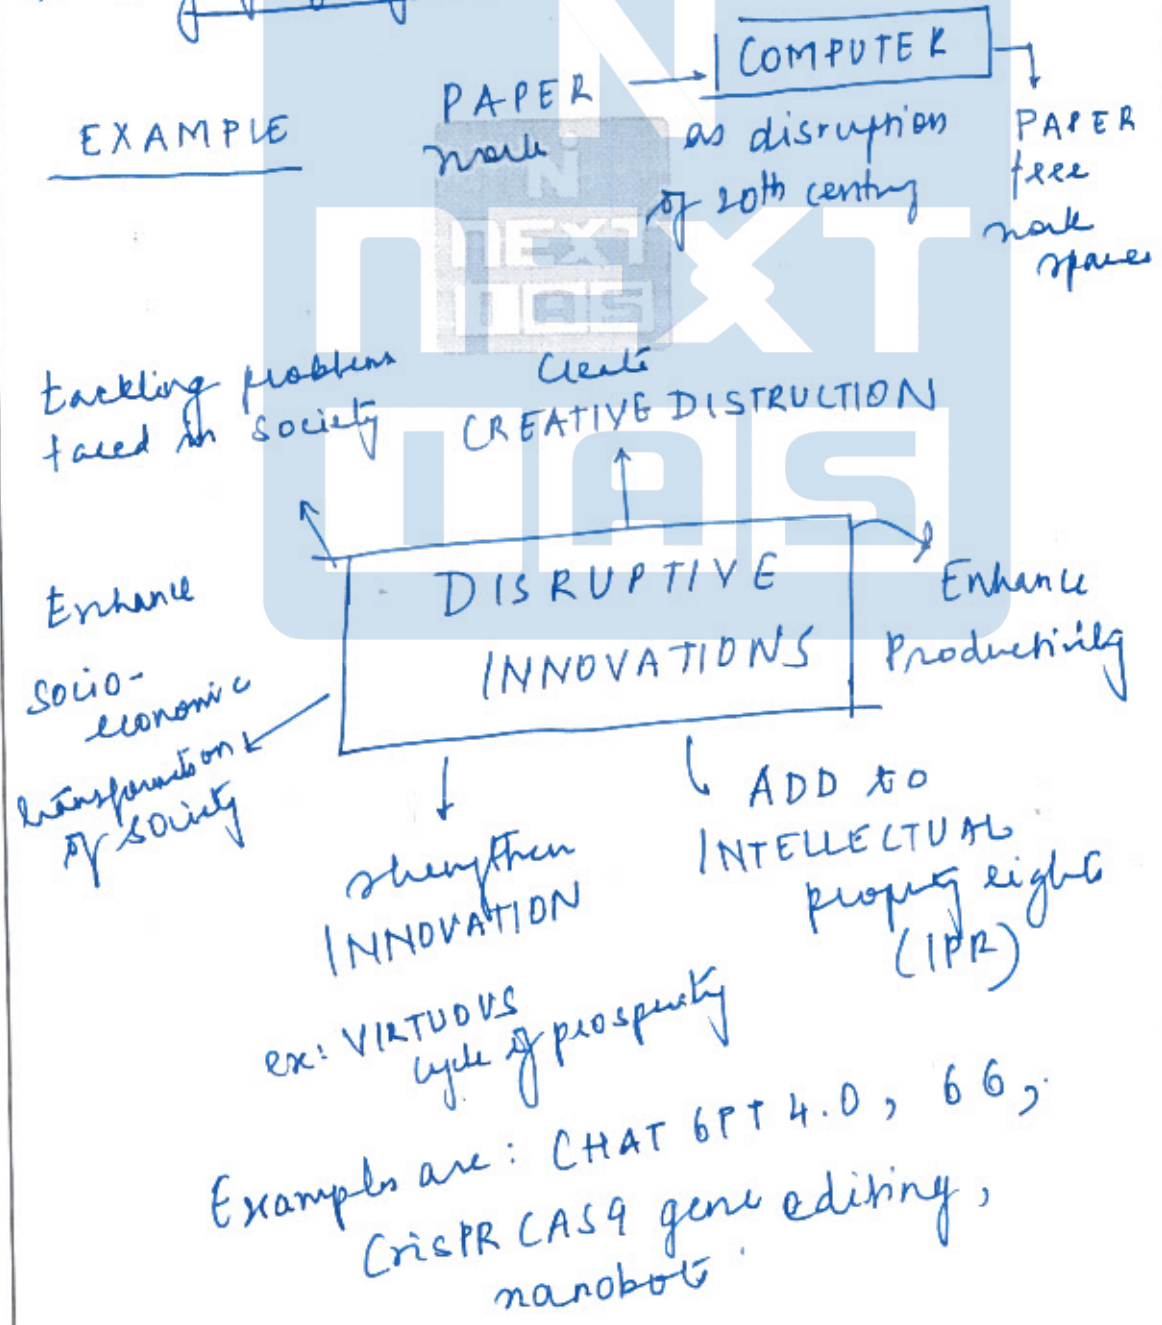 EXAMPLE
PAPER
work
COMPUTER
as disruption
of 20th century
PAPER
free
work
spaces
tackling problems
faced in society
Create
CREATIVE DISTRUCTION
DISRUPTIVE
INNOVATIONS
Enhance
Productivity
Enhance
socio-
economic
transformation
of society
strengthen
INNOVATION
ex: VIRTUOUS
cycle of prosperity
ADD to
INTELLECTUAL
property rights
(IPR)
Examples are: CHAT GPT 4.0, 6G,
CrisPR CAS9 gene editing,
nanobot
N
NEXT
IAS
N
NEXT
IAS